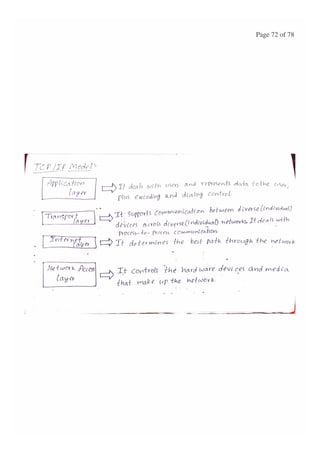 Page 72 of 78
TCP/IP Model:-
Application
layer
It deals with users and represents data to the user,
plus encoding and dialog control.
Transport
layer
It supports communication between diverse (Individual)
devices across diverse (Individual) networks. It deals with
process-to-process communication
Internet
layer
It determines the best path through the network
Network Access
layer
It controls the hardware devices and media
that make up the network.